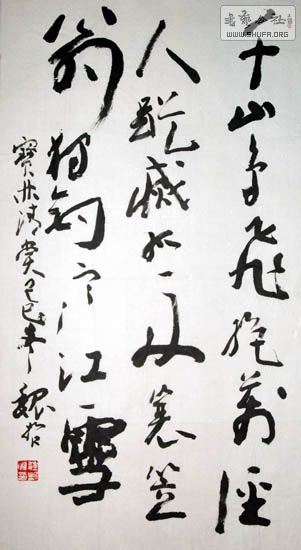 千山鳥飛絕萬徑
人蹤滅孤舟蓑笠
翁獨釣寒江雪
寶林清賞 巳年 魏哲
WWW.SHUFA.ORG